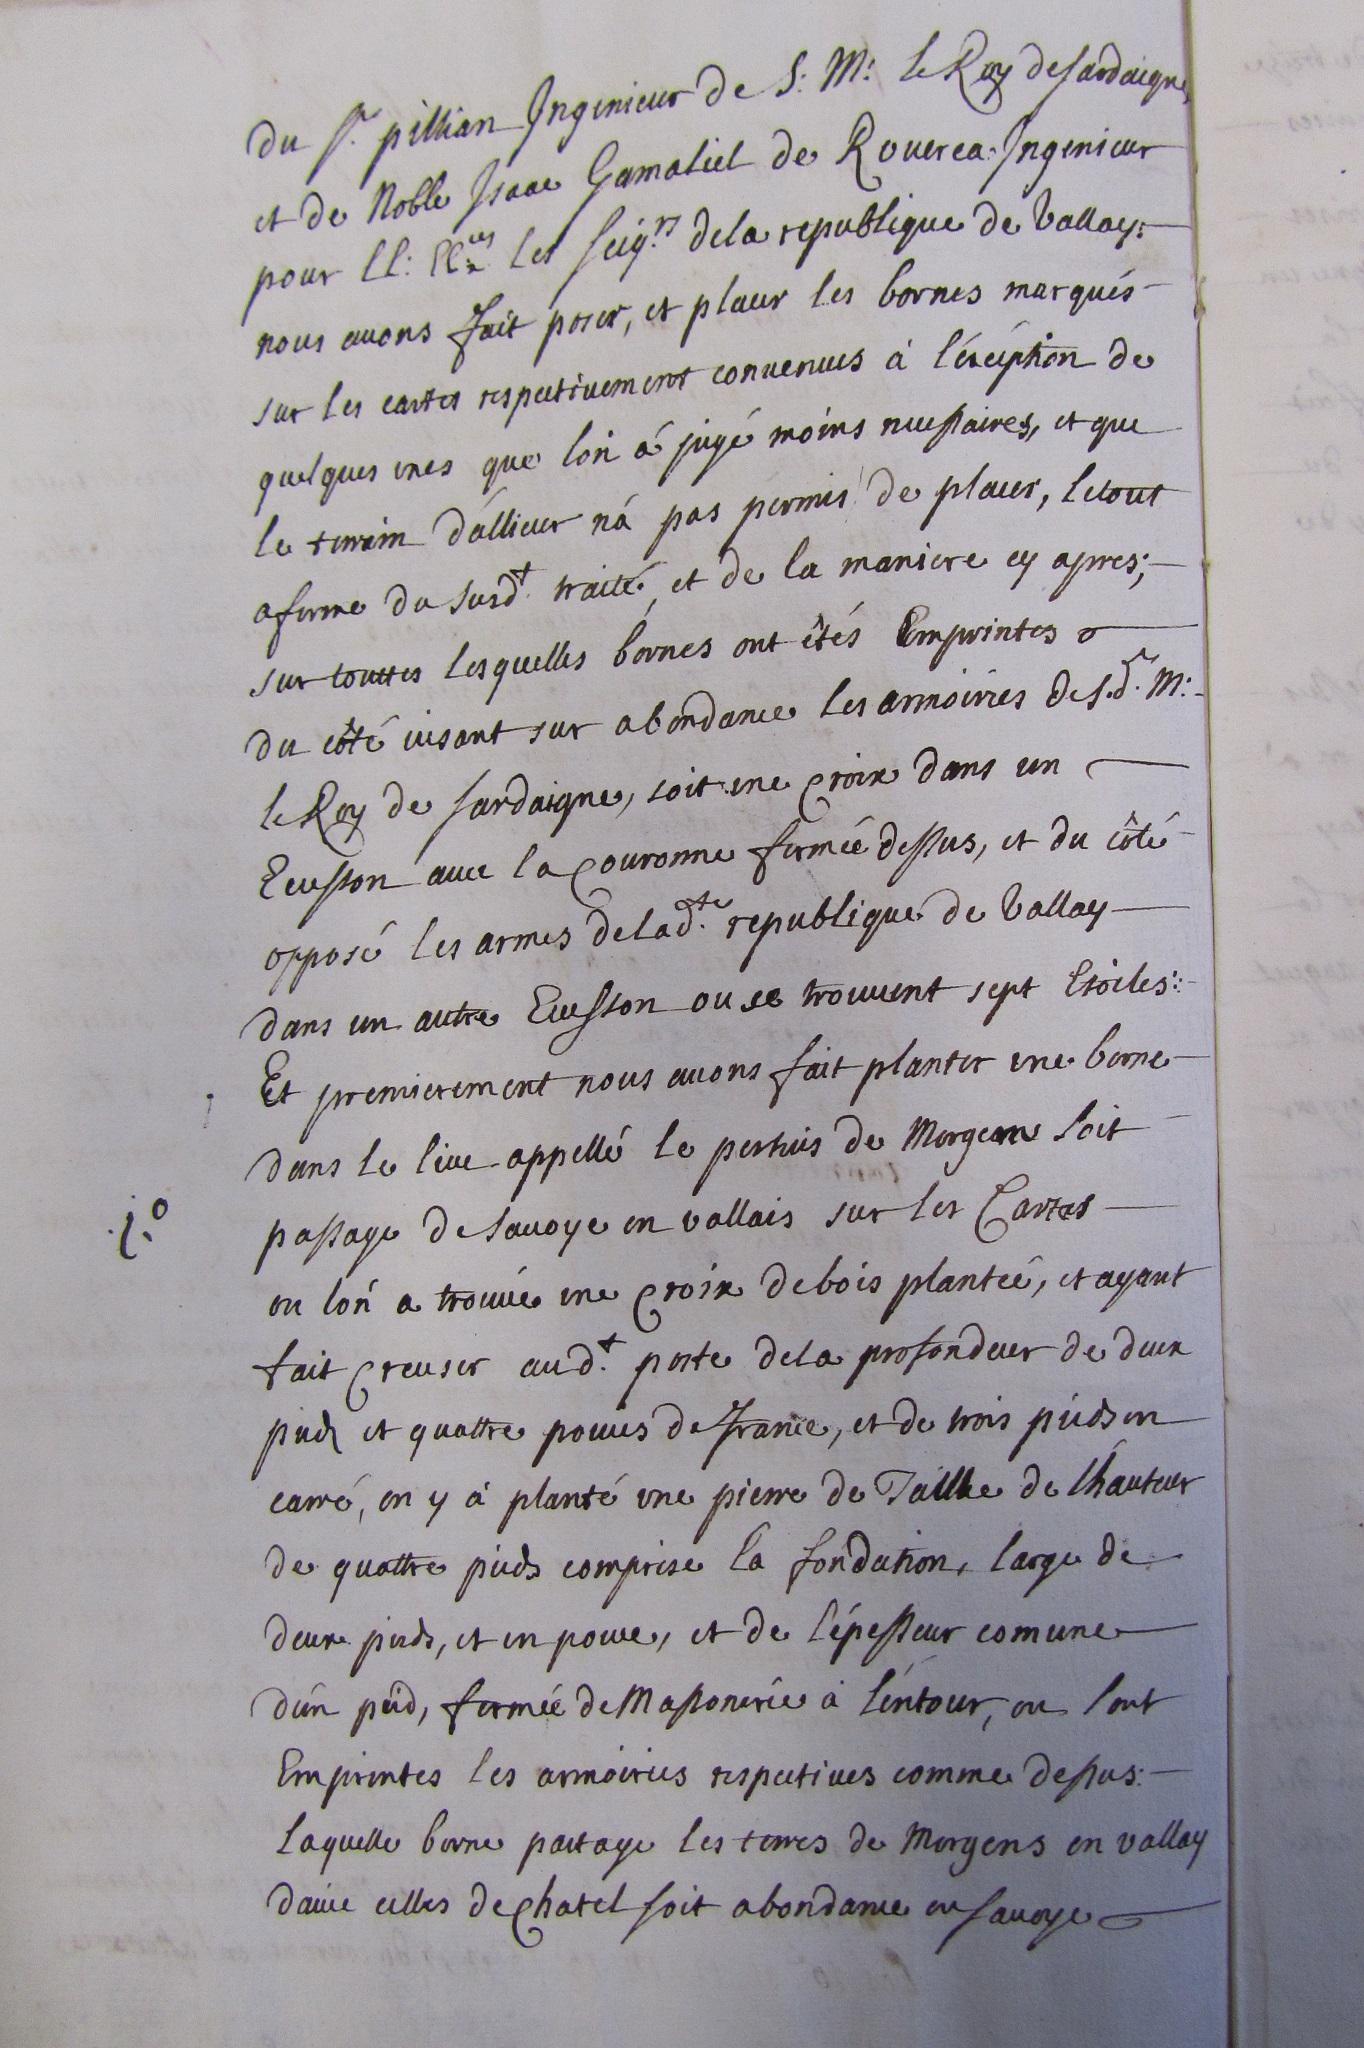 du Sr. pillian Ingenieur de S: M: le Roy de sardaigne,
et de Noble Isaac Gamaliel de Rouerea Ingenieur
pour LL: EEces les seigrs dela republique de Vallay:
nous auons fait poser, et placer les bornes marqués
sur les cartes respectiuement conuenues à l'éxception de
quelques unes que lon á jugé moins necessaires, et que
le terrain d'allieur ná pas permis de placer, le tout
a forme du susdt. traité, et de la maniere cy apres;
sur touttes lesquelles bornes ont êtés Emprintes
du côté uisant sur abondance les armoiries de s.de. M:
le Roy de sardaigne, soit une Croix dans un
Ecusson auec la Couronne fermée dessus, et du côté
opposé les armes de la dte. republique de Vallay
dans un autre Ecusson ou se trouuent sept Etoiles:
Et premierement nous auons fait planter une borne
dans le lieu appellé le pertuis de Morgens soit
1.o passage de sauoye en vallais sur les Cartes
ou lon a trouué une Croix de bois plantée, et ayant
fait Creuser audt. poste dela profondeur de deux
pieds et quattre pouces de france, et de trois pieds en
carré, on y à planté une pierre de Taillie de lhauteur
de quattre pieds comprise la fondation, large de
deux pieds, et un pouce, et de l'épesseur comune
dún peid, fermée de Massonerie à léntour, ou sont
Emprintes les armoiries respectiues comme dessus:
laquelle borne partage les terres de Morgens en vallay
dauec celles de Chatel soit abondance en sauoye